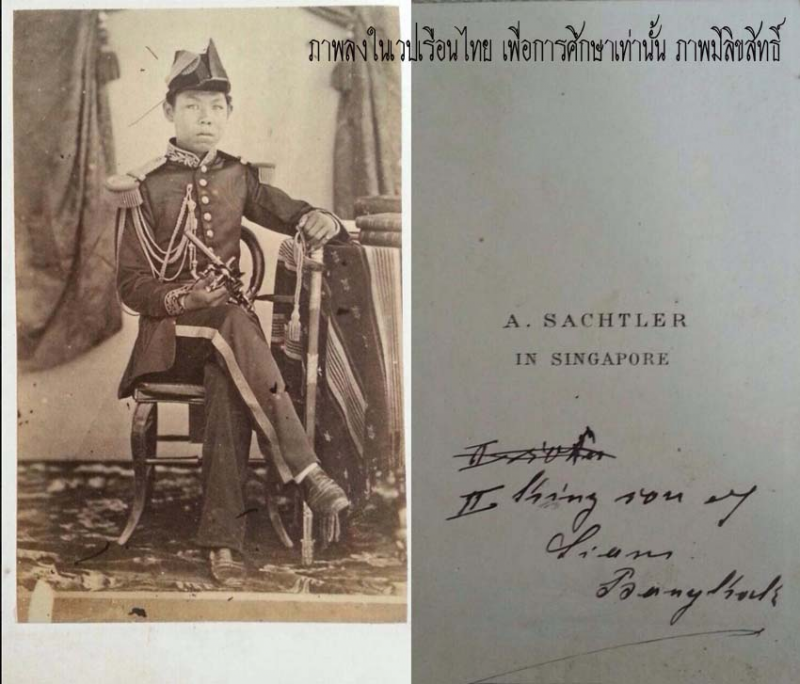 ภาพลงในเวปเรือนไทย เพื่อการศึกษาเท่านั้น ภาพมีลิขสิทธิ์
A. SACHTLER
IN SINGAPORE
II
II King son of
Siam
Bangkok